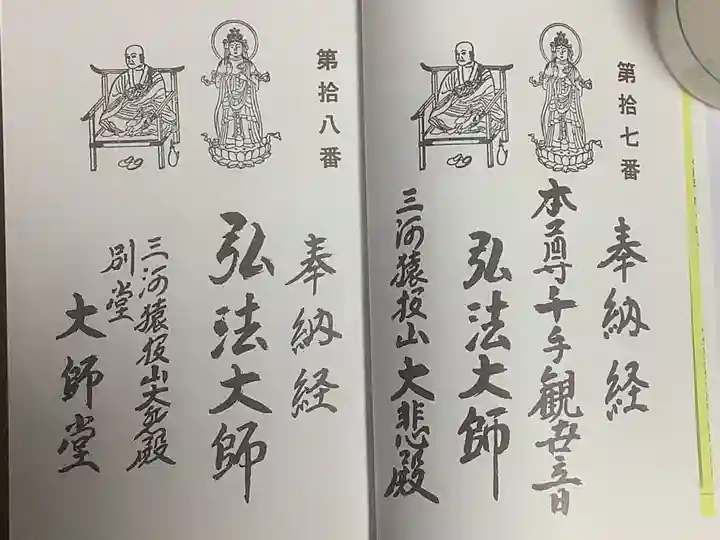 第拾七番
奉納経
本尊千手観世音
弘法大師
三河猿投山大悲殿
第拾八番
奉納経
弘法大師
三河猿投山大悲殿
別堂
大師堂